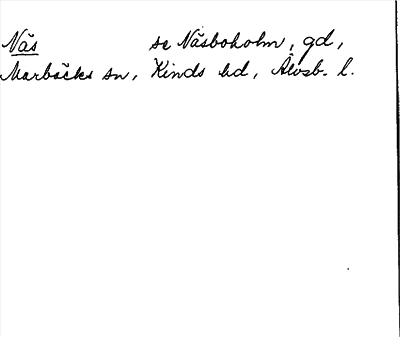 Näs se Näsboholm, gd,
Marbäcks sn, Kinds hd, Älvsb. l.